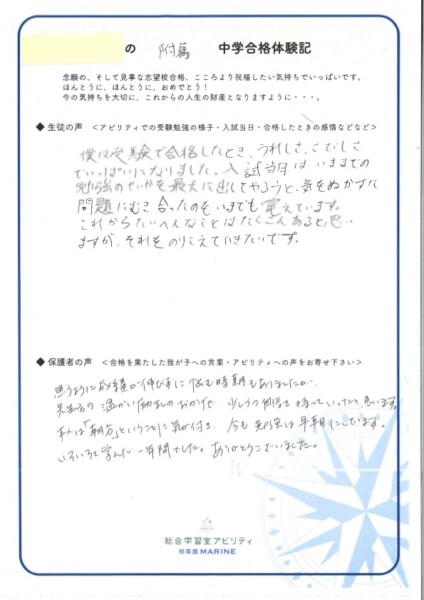 の 附属 中学合格体験記
念願の、そして見事な志望校合格、こころより祝福したい気持ちでいっぱいです。
ほんとうに、ほんとうに、おめでとう！
今の気持ちを大切に、これからの人生の財産となりますように・・・。
◆ 生徒の声 ＜アビリティでの受験勉強の様子・入試当日・合格したときの感情などなど＞
僕は受験で合格したとき、うれしさ、さびしさ
でいっぱいになりました。入試当日はいままでの
勉強のせいかを最大に出してやろうと、気をぬかずに
問題にむき合ったのをいまでも覚えています。
これからたいへんなことはたくさんあると思い
ますが、それをのりこえていきたいです。
◆ 保護者の声 ＜合格を果たした我が子への言葉・アビリティへの声をお寄せ下さい＞
思うように成績が伸びずに悩む時期もありましたが、
先生方の温かい励ましのおかげで、少しずつ自信を持っていったと思います。
本人は「朝方」ということに気が付き、今も勉強は早朝にしています。
いろいろと学んだ一年間でした。ありがとうございました。
総合学習室アビリティ
初等部 MARINE